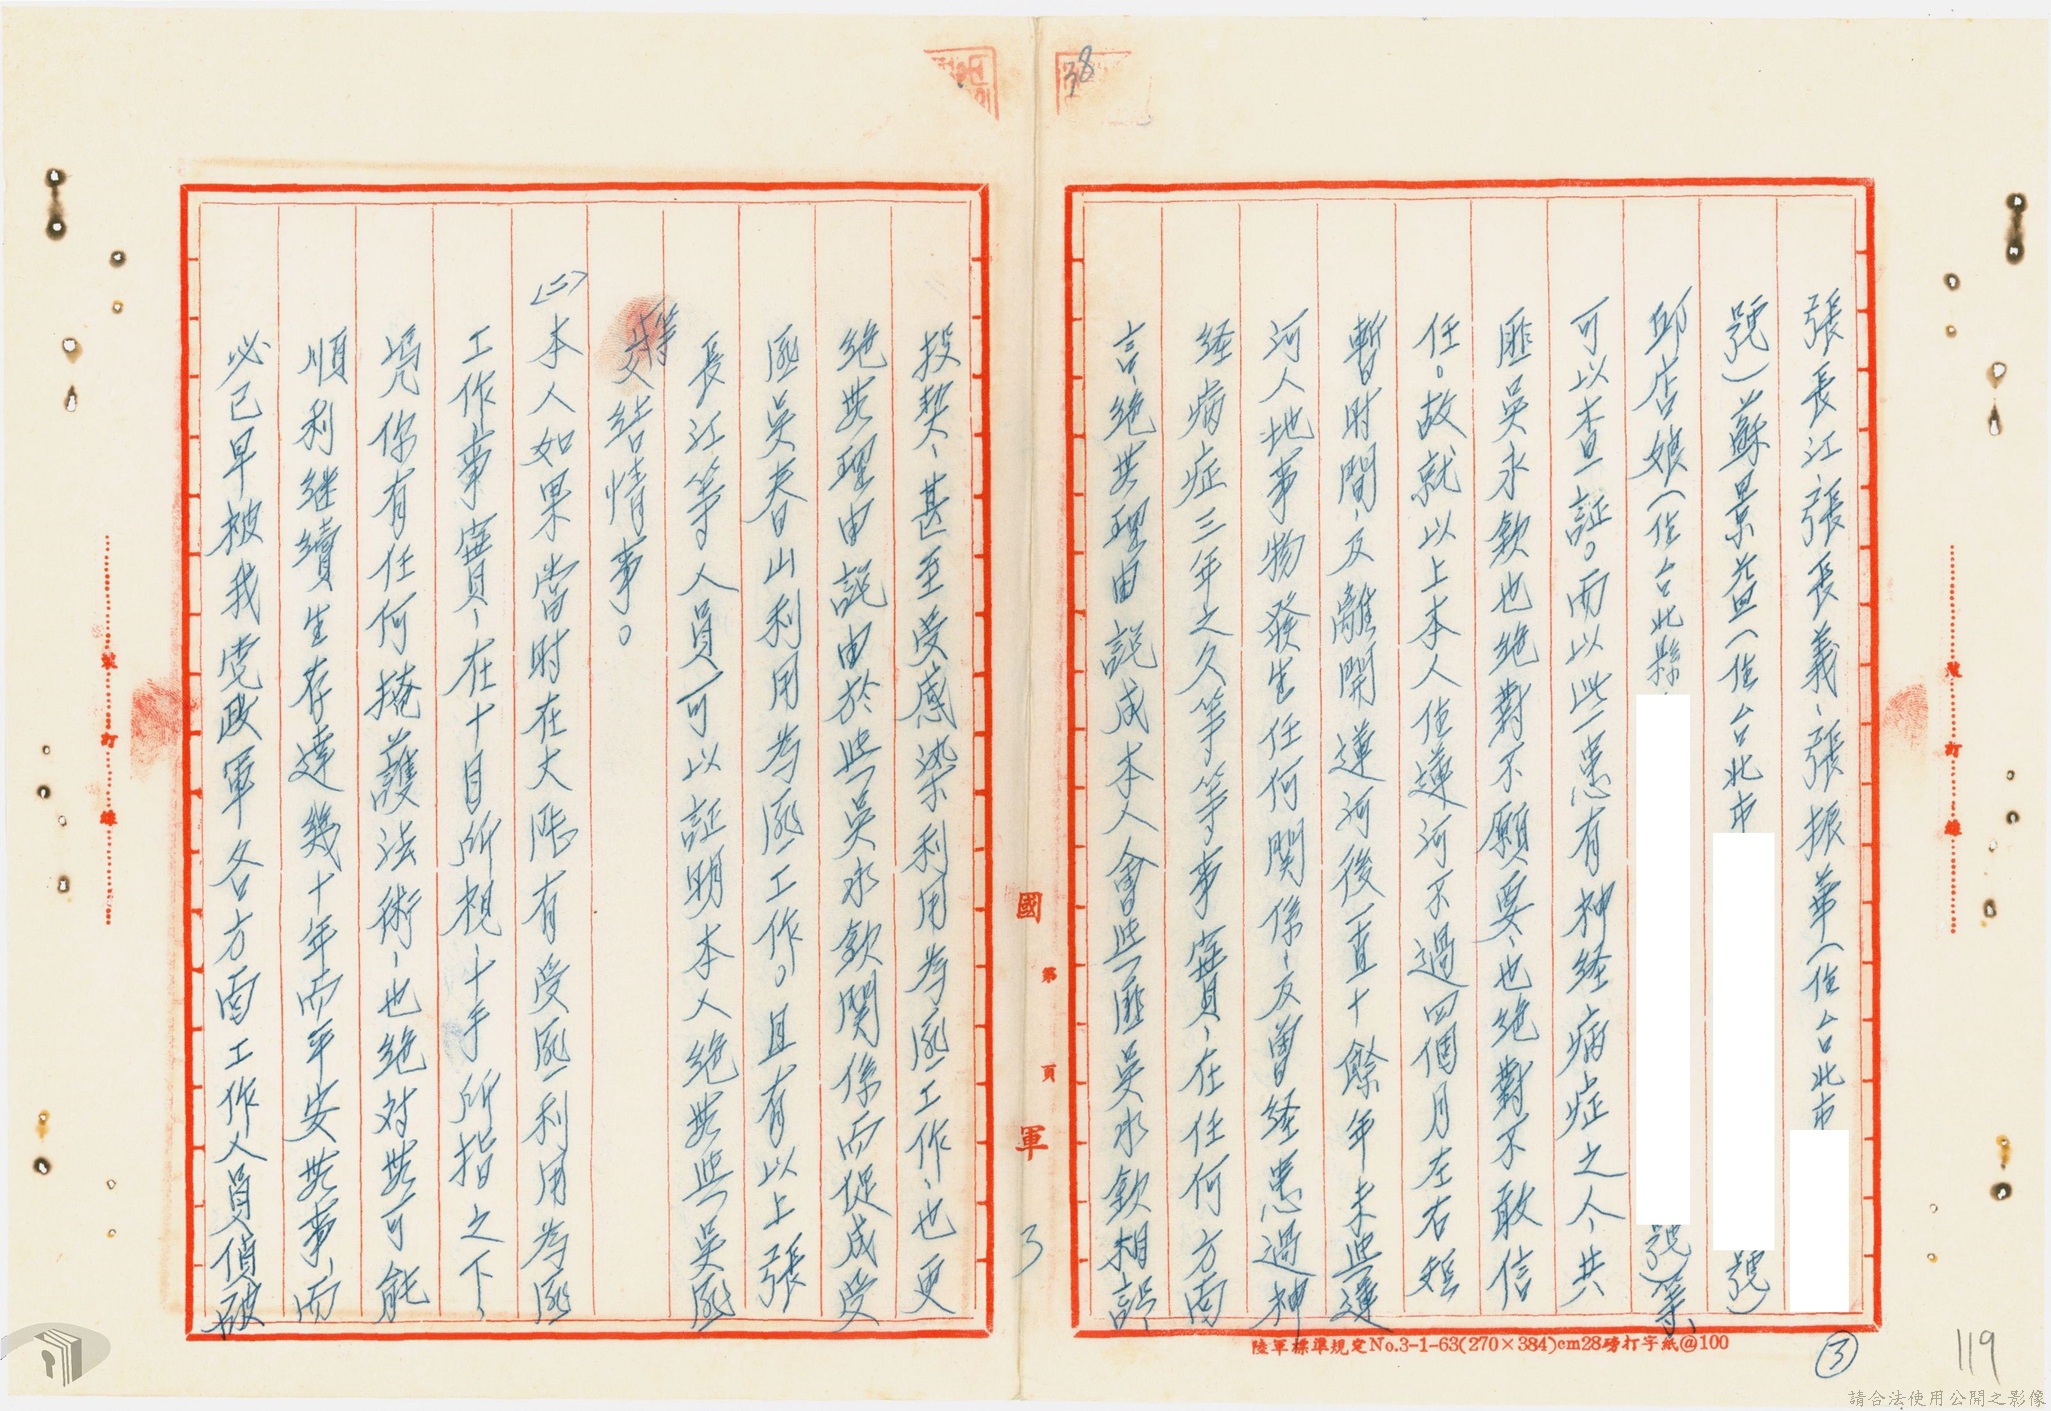 38
張長江、張長義、張振華(住台北市
號)蘇景益(住台北市 號)
邱店娘(住台北縣 號)等、
可以查証。而以些患有神経病症之人、共
匪吳永欽也絕對不願要、也絕對不敢信
任。故就以上本人住蓮河不過四個月左右短
暫时間、及離開蓮河後一直十餘年未與蓮
河人地事物發生任何関係、及曾経患過神
経病症三年之久等等事實、在任何方面
言、絕無理由説成本人會與匪吳永欽相
國 第 頁 軍 3
投契、甚至受感染利用為匪工作、也更
絕無理由説由於與吳永欽関係而促成受
匪吳春山利用為匪工作。且有以上張
長江等人員可以証明本人絕無與吳匪
等
交結情事。
(二)本人如果當时在大陸有受匪利用為匪
工作事實、在十目所視、十手所指之下、
凭你有任何掩護法術、也絕对無可能
順利継續生存達幾十年而平安無事、而
必已早被我党政軍各方面工作人員偵破
裝 訂 線
裝 訂 線
陸軍標準規定No.3-1-63(270×384)cm28磅打字紙@100
③
119
請合法使用公開之影像